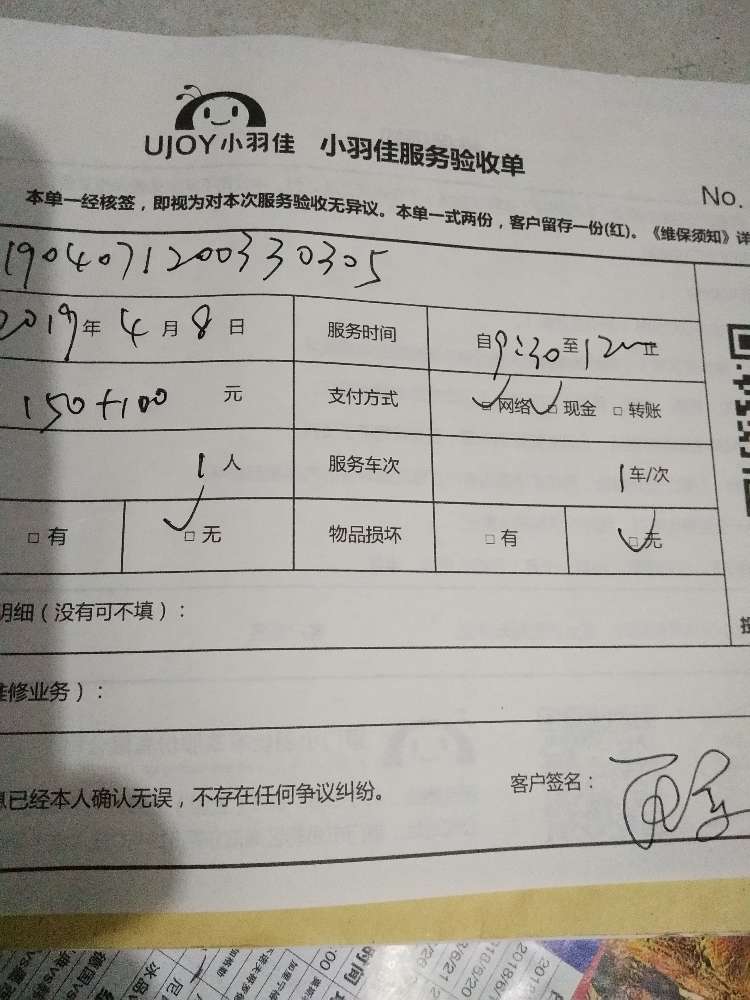 UJOY小羽佳 小羽佳服务验收单
No.
本单一经核签，即视为对本次服务验收无异议。本单一式两份，客户留存一份(红)。《维保须知》详
190407120033030305
2019年4月8日 服务时间 自9:30至12 止
150+100 元 支付方式 □网络 □现金 □转账
1人 服务车次 1车/次
□有 □无 物品损坏 □有 □无
明细（没有可不填）：
维修业务）：
息已经本人确认无误，不存在任何争议纠纷。 客户签名：